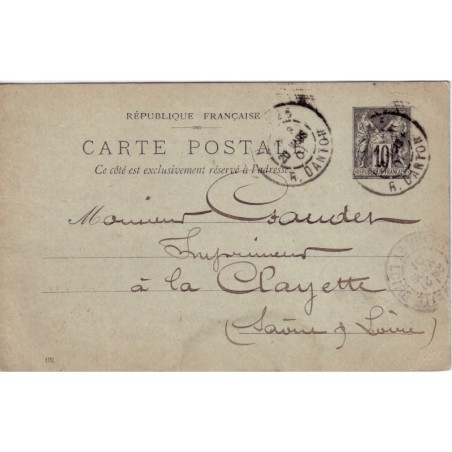 RÉPUBLIQUE FRANÇAISE
CARTE POSTALE
Ce côté est exclusivement réservé à l'adresse
R. DANTON
10
R. DANTON
Monsieur
Imprimeur
à la Clayette
(Saône & Loire)